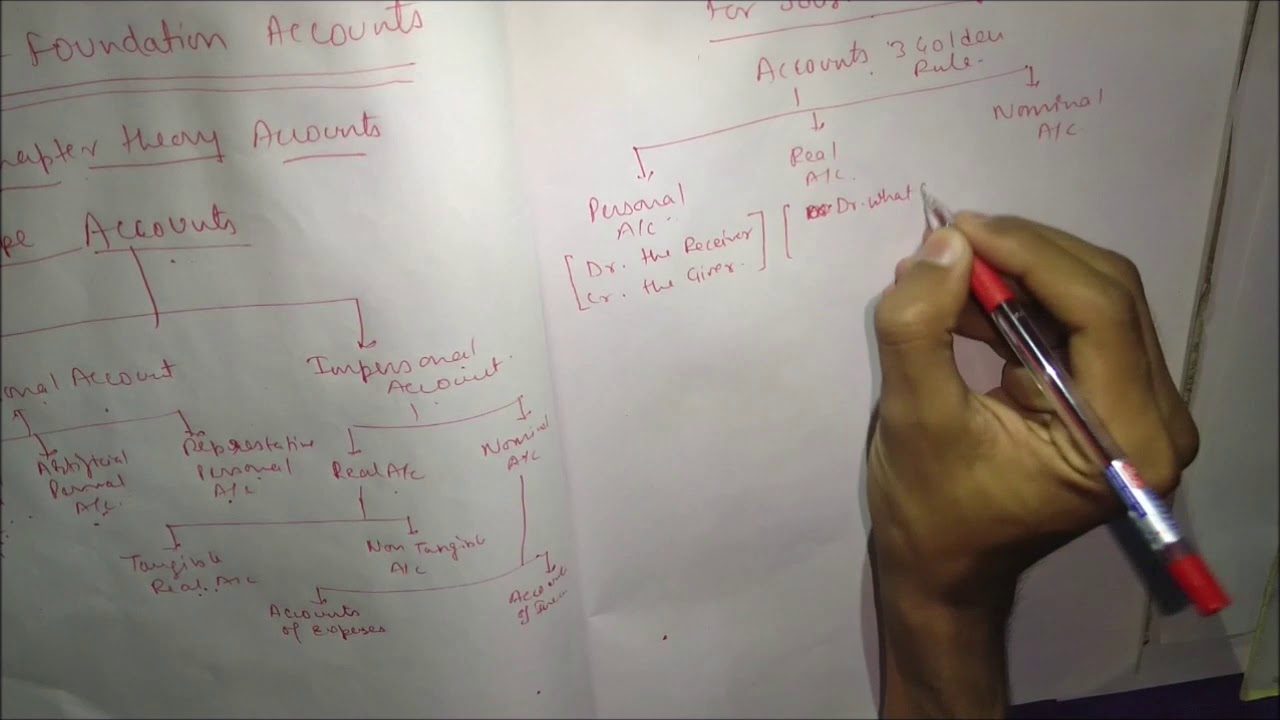 Foundation Accounts
hapter theory Accounts
pe Accounts
onal Account
Impersonal
Account
Artificial
Persnal
A/c.
Represtative
Personal
A/c
Real A/c
Nominal
A/c
Tangible
Real A/c
Non Tangible
A/c
Accounts
of Expeses
Account
of
For
Accounts 3 Golden
Rule
Personal
A/c
Real
A/c.
Nominal
A/c
[Dr. the Receiver]
[Cr. the Giver.]
[Dr. what